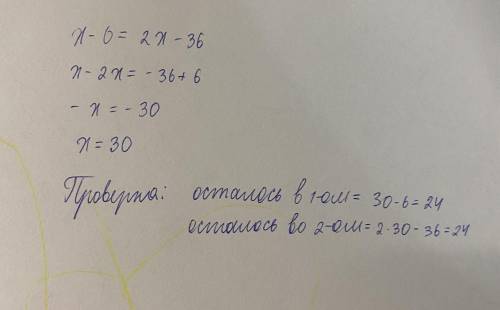 x - 6 = 2x - 36
x - 2x = - 36 + 6
- x = - 30
x = 30
Проверка: осталось в 1-ом = 30 - 6 = 24
осталось во 2-ом = 2 · 30 - 36 = 24